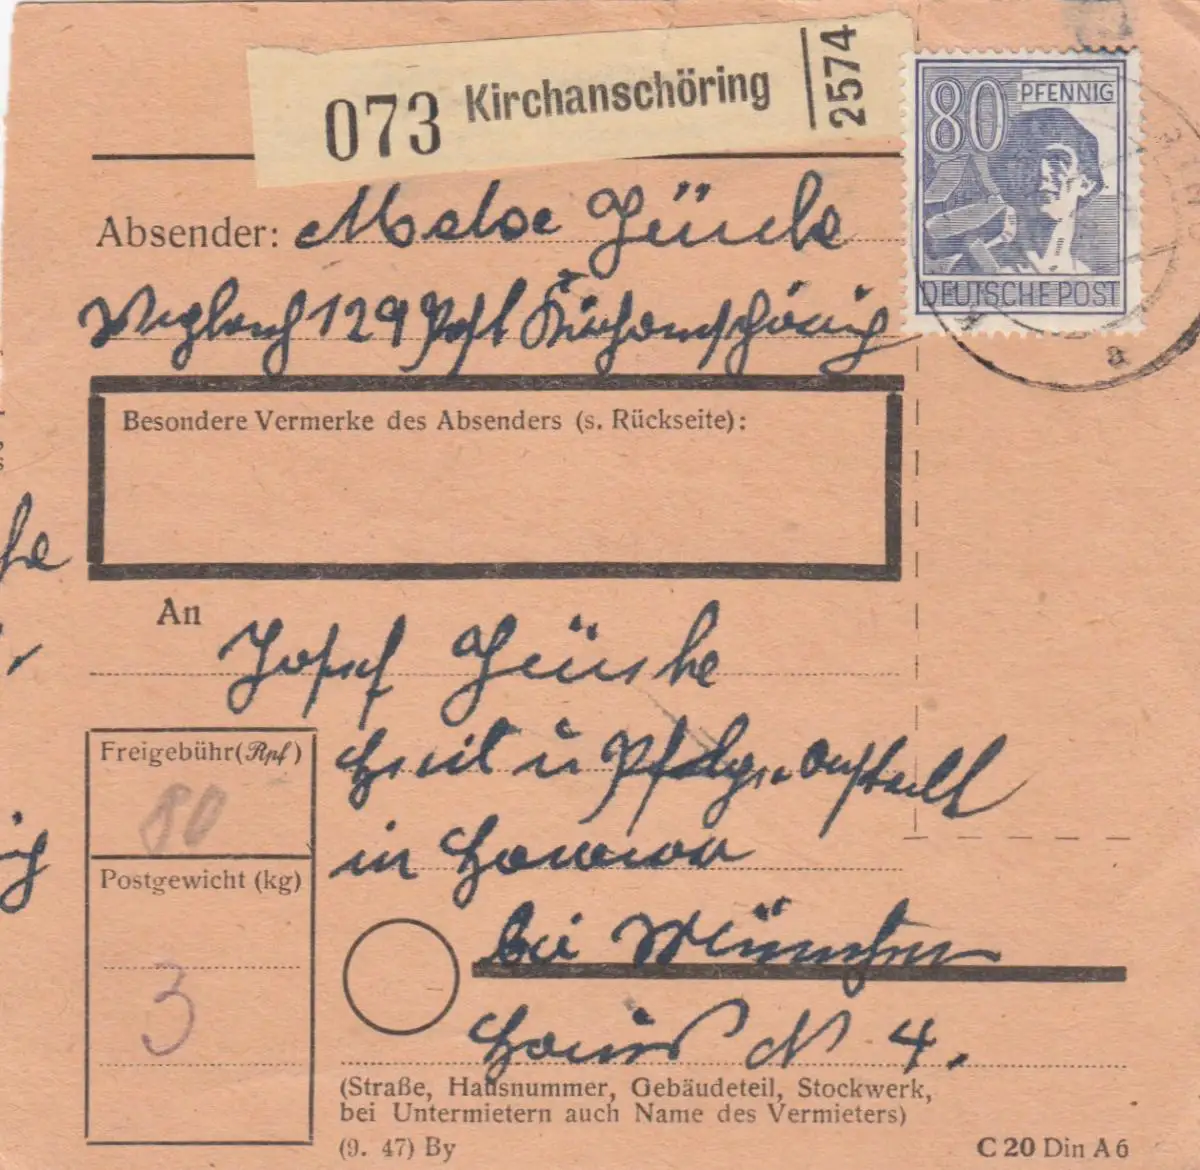 073 Kirchanschöring 2574
80 PFENNIG
DEUTSCHE POST
a
Absender:
129 Post Kirchanschöring
Besondere Vermerke des Absenders (s. Rückseite):
An
Josef
Heil u Pflege anstalt
in
bei München
Haus N 4.
Freigebühr (Rpf)
80
Postgewicht (kg)
3
(Straße, Hausnummer, Gebäudeteil, Stockwerk,
bei Untermietern auch Name des Vermieters)
(9. 47) By
C 20 Din A 6